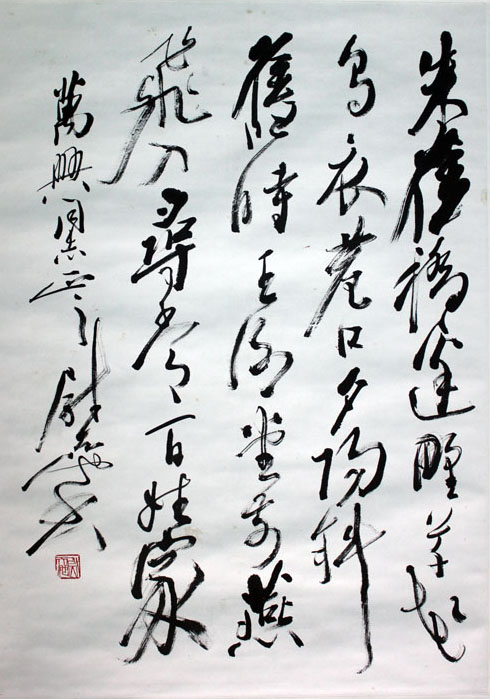 朱雀橋邊野草花
烏衣巷口夕陽斜
舊時王謝堂前燕
飛入尋常百姓家
萬興同志正之 尉天池